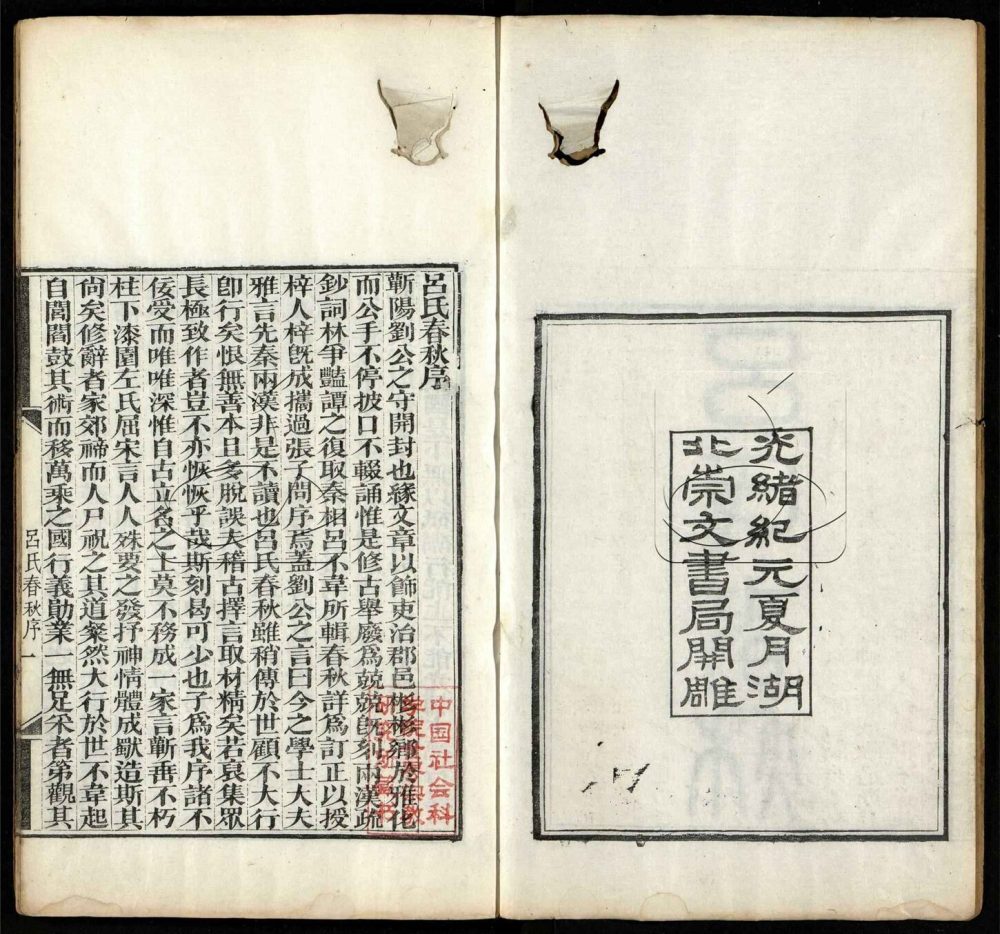 光緒紀元夏月湖
北崇文書局開雕
呂氏春秋序
蘄陽劉公之守開封也緣文章以飾吏治郡邑彬彬鄉於雅化
而公手不停披口不輟誦惟是修古舉廢爲兢兢旣刻兩漢疏
鈔詞林爭豔譚之復取秦相呂不韋所輯春秋詳爲訂正以授
梓人梓旣成攜過張子問序焉蓋劉公之言曰今之學士大夫
雅言先秦兩漢非是不讀也呂氏春秋雖稍傳於世顧不大行
卽行矣恨無善本且多脫誤夫稽古擇言取材精矣若裒集眾
長極致作者豈不亦恢恢乎哉斯刻曷可少也子爲我序諸不
佞受而唯唯深惟自古立名之士莫不務成一家言蘄垂不朽
柱下漆園左氏屈宋言人人殊要之發抒神情體成獸造斯其
尙矣修辭者家郊禘而人尸祝之其道粲然大行於世不韋起
自闤闠鼓其術而移萬乘之國行義勛業一無足采者第觀其
呂氏春秋序 一
中国社会科